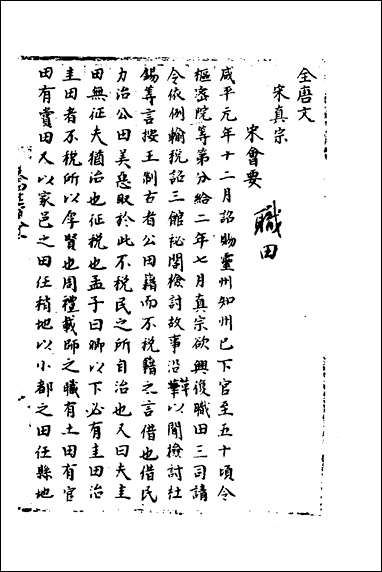 全唐文
宋真宗
宋會要
職田
咸平元年十二月詔賜靈州知州已下官至五十頃令
樞密院等第分給二年七月真宗欲興復職田三司請
令依例輸稅詔三館祕閣檢討故事沿革以聞檢討杜
鎬等言按王制古者公田籍而不稅籍之言借也借民
力治公田美惡取於此不稅民之所自治也又曰夫圭
田無征夫猶治也征稅也孟子曰卿以下必有圭田治
圭田者不稅所以厚賢也周禮載師之職有士田有官
田有賞田又以家邑之田任稍地以小都之田任縣地